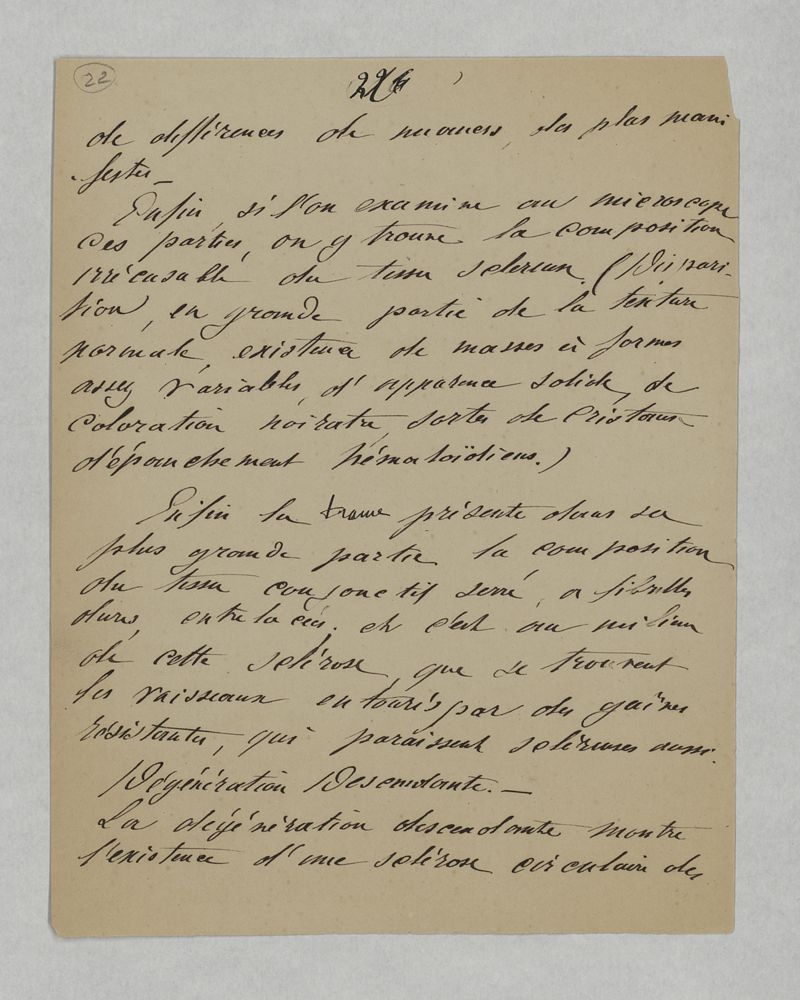 22
de différences de nuances, des plus mani
festes_
Enfin, si l'on examine au microscope
ces parties, on y trouve la composition
irrécusable du tissu scléreux. (Dispari-
tion, en grande partie de la texture
normale, existence de masses à formes
assez variables, d'apparence solide, de
coloration noirâtre, sortes de cristaux
d'épanchement hématoïdiens.)
Enfin la trame présente dans sa
plus grande partie la composition
du tissu conjonctif serré, a fibrilles
dures, entrelacées; et c'est au milieu
de cette sclérose, que se trouvent
les vaisseaux entourés par des gaînes
résistantes, qui paraissent scléreuses aussi.
Dégénération Descendante._
La dégénération descendante montre
l'existence d'une sclérose circulaire des